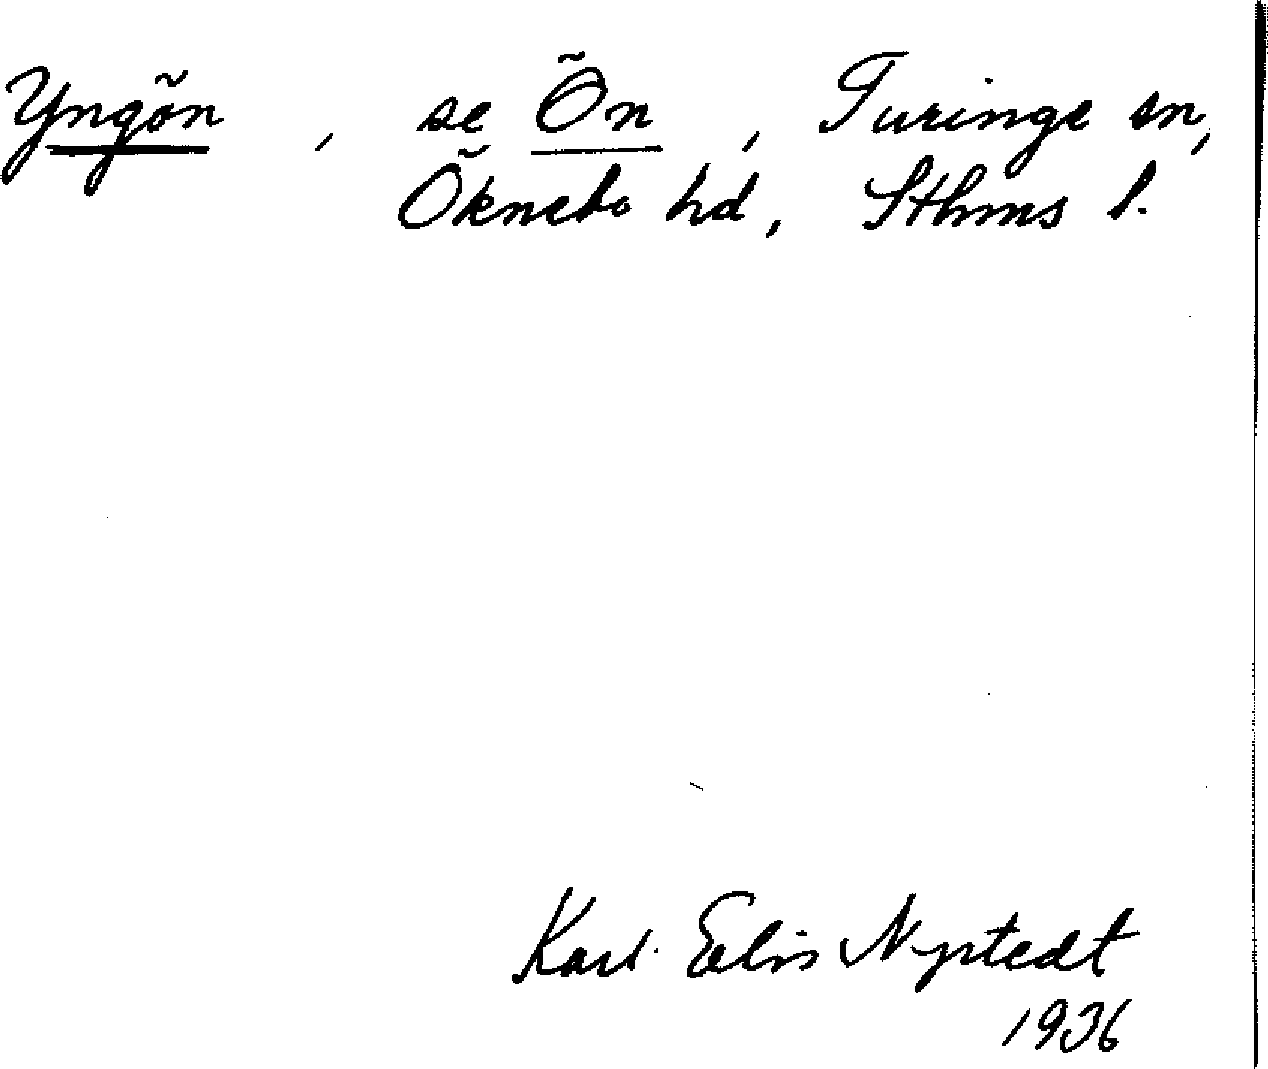 Yngön, se Ön, Turinge sn,
Öknebo hd, Sthms l.
Karl Elis Nystedt
1936